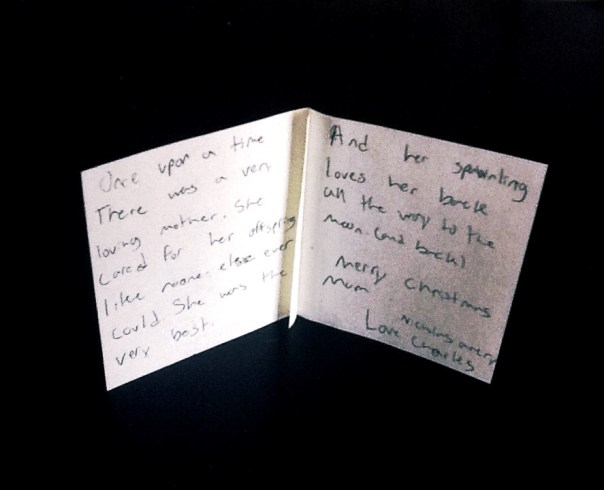 Once upon a time
There was a very
loving mother. She
cared for her offspring
like noone else ever
could She was the
very best.
And her spawnling
loves her back
all the way to the
moon. (and back)
Merry Christmas
Mum
Love Charles